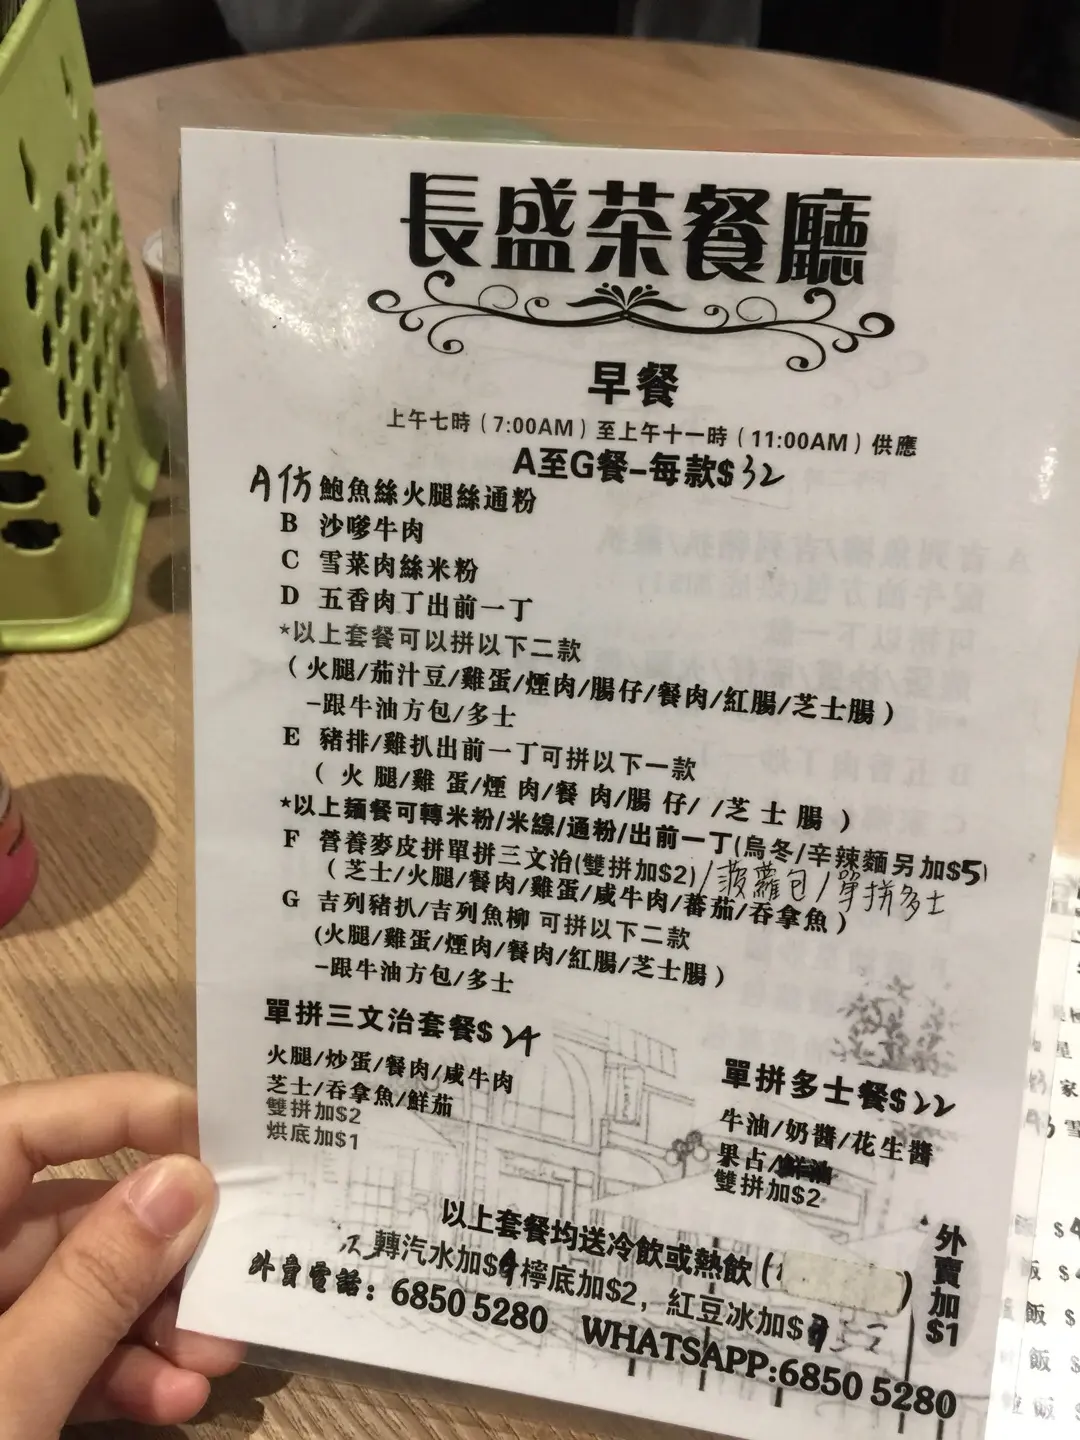 長盛茶餐廳
早餐
上午七時(7:00AM)至上午十一時(11:00AM)供應
A至G餐-每款$32
A仿鮑魚絲火腿絲通粉
B 沙嗲牛肉
C 雪菜肉絲米粉
D 五香肉丁出前一丁
*以上套餐可以拼以下二款
(火腿/茄汁豆/雞蛋/煙肉/腸仔/餐肉/紅腸/芝士腸)
-跟牛油方包/多士
E 豬排/雞扒出前一丁可拼以下一款
(火腿/雞蛋/煙肉/餐肉/腸仔/ /芝士腸)
*以上麵餐可轉米粉/米線/通粉/出前一丁(烏冬/辛辣麵另加$5)
F 營養麥皮拼單拼三文治(雙拼加$2)/菠蘿包/單拼多士
(芝士/火腿/餐肉/雞蛋/咸牛肉/蕃茄/吞拿魚)
G 吉列豬扒/吉列魚柳 可拼以下二款
(火腿/雞蛋/煙肉/餐肉/紅腸/芝士腸)
-跟牛油方包/多士
單拼三文治套餐$24
火腿/炒蛋/餐肉/咸牛肉
芝士/吞拿魚/鮮茄
雙拼加$2
烘底加$1
單拼多士餐$22
牛油/奶醬/花生醬
果占/
雙拼加$2
以上套餐均送冷飲或熱飲
轉汽水加$ 檸底加$2, 紅豆冰加$
外賣電話: 6850 5280
WHATSAPP:6850 5280
外賣加$1